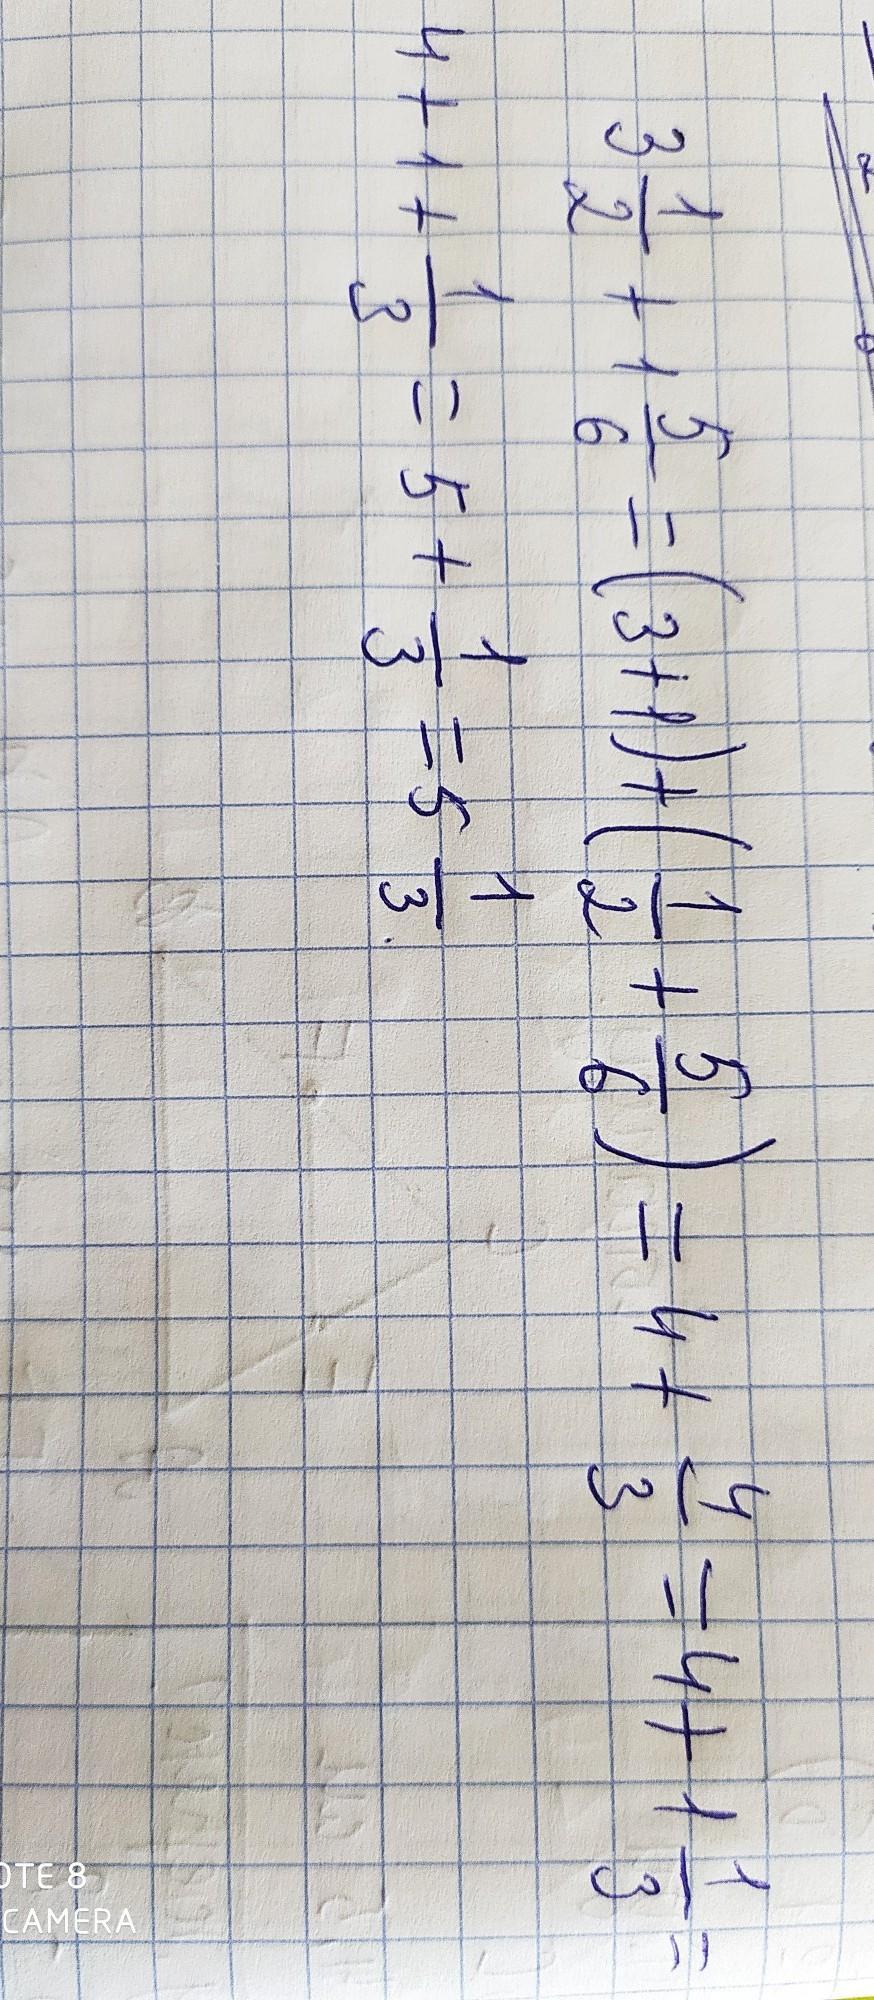 3 1/2 + 1 5/6 = (3+1) + (1/2 + 5/6) = 4 + 4/3 = 4 + 1 1/3 =
4 + 1 + 1/3 = 5 + 1/3 = 5 1/3.
OTE 8
CAMERA